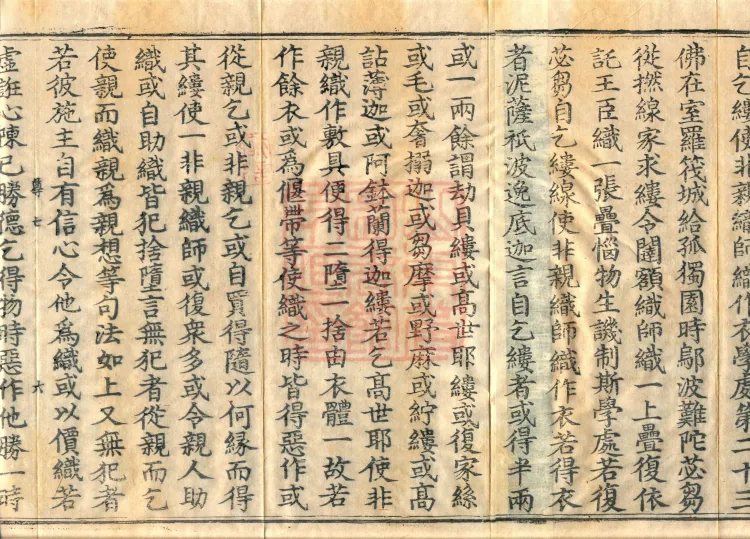 自乞縷使非親織師織作衣學處第二十三
佛在室羅筏城給孤獨園時鄔波難陀苾芻
從撚線家求縷令闊額織師織一上疊復依
託王臣織一張疊惱物生譏制斯學處若復
苾芻自乞縷線使非親織師織作衣若得衣
者泥薩祇波逸底迦言自乞縷者或得半兩
或一兩餘謂劫具縷或高世耶縷或復家絲
或毛或奢搦迦或芻摩或野麻或紵縷或高
詀薄迦或阿鉢蘭得迦縷若乞高世耶使非
親織作敷具便得二墮一捨由衣體一故若
作餘衣或為偃帶等使織之時皆得惡作或
從親乞或非親乞或自買得隨以何緣而得
其縷使一非親織師或復衆多或令親人助
織或自助織皆犯捨墮言無犯者從親而乞
使親而織親為親想等句法如上又無犯者
若彼施主自有信心令他為織或以價織若
隸七 六
虛誑心陳已勝德乞得物時惡作他勝一時